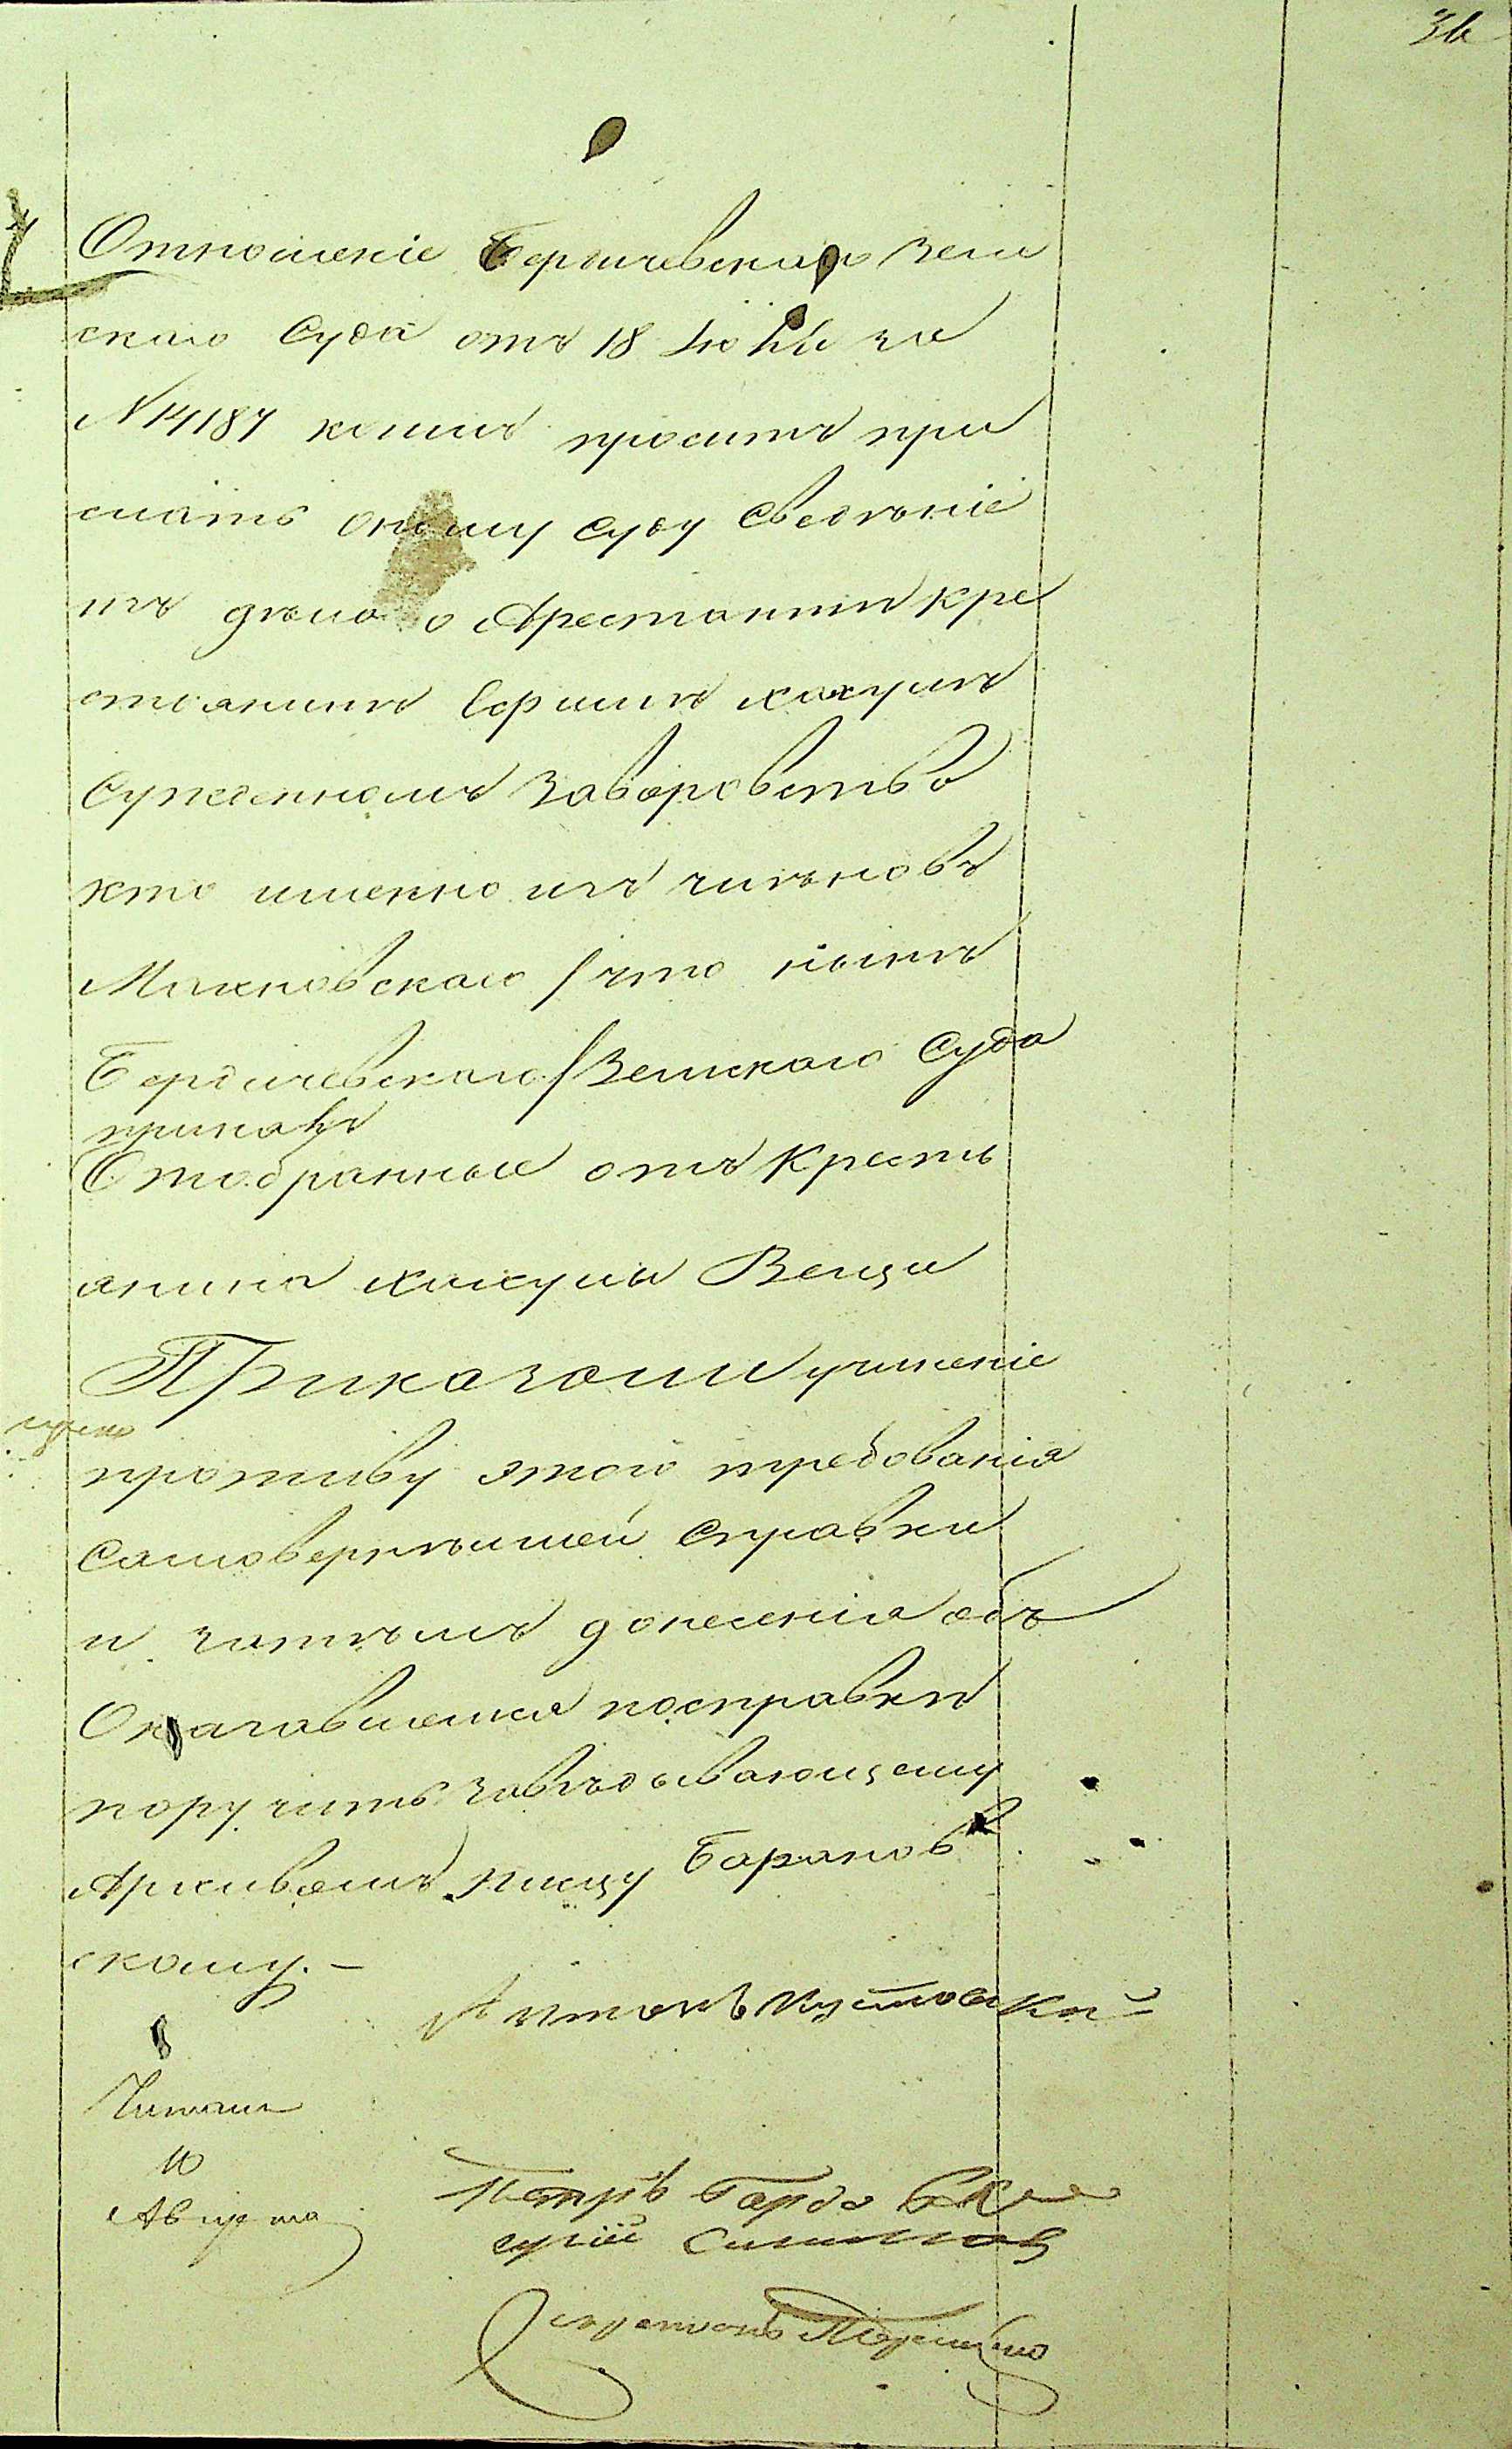 36
Отношеніе Бердичевскаго Зем
скаго Суда отъ 18 Іюня за
N 14187 коимъ проситъ при
слать оному суду сведѣніе
изъ дѣла о Арестантѣ кре
стьянинѣ
Сужденномъ За воровство
кто именно изъ членовъ
Махновскаго / что нынѣ
Бердичевскаго / Земскаго Суда
принялъ
Отобранные отъ Кресть
янина Вещи
Приказали учиненіе
противу этого требованія
Самовернѣйшей Справки
и затѣмъ донесенія объ
Оказавшемся по справкѣ
поручить завѣдывающему
Архивомъ писцу Баранов
скому. –
Антонъ Кустовскій
Читалъ
10
Августа
Петръ